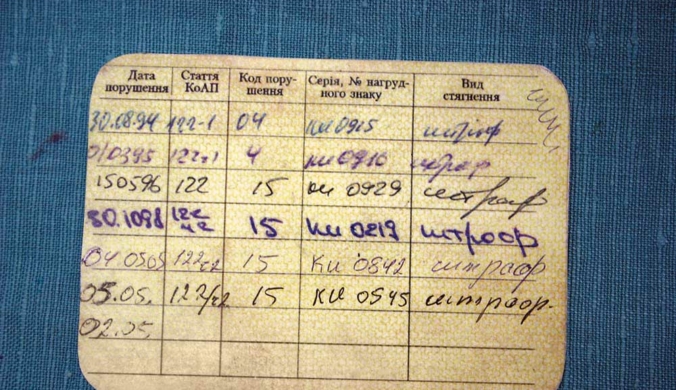 Дата порушення Стаття КоАП Код порушення Серія, № нагрудного знаку Вид стягнення
30.08.94 122-1 04 КИ 0915 штраф
010395 122ч1 4 КИ 0916 штраф
150596 122 15 КИ 0929 штраф
30.1098 122 ч2 15 КИ 0219 штраф
04.0505 122ч2 15 КИ 0842 штраф
05.05. 122/ч2 15 КИ 0545 штраф.
02.05.